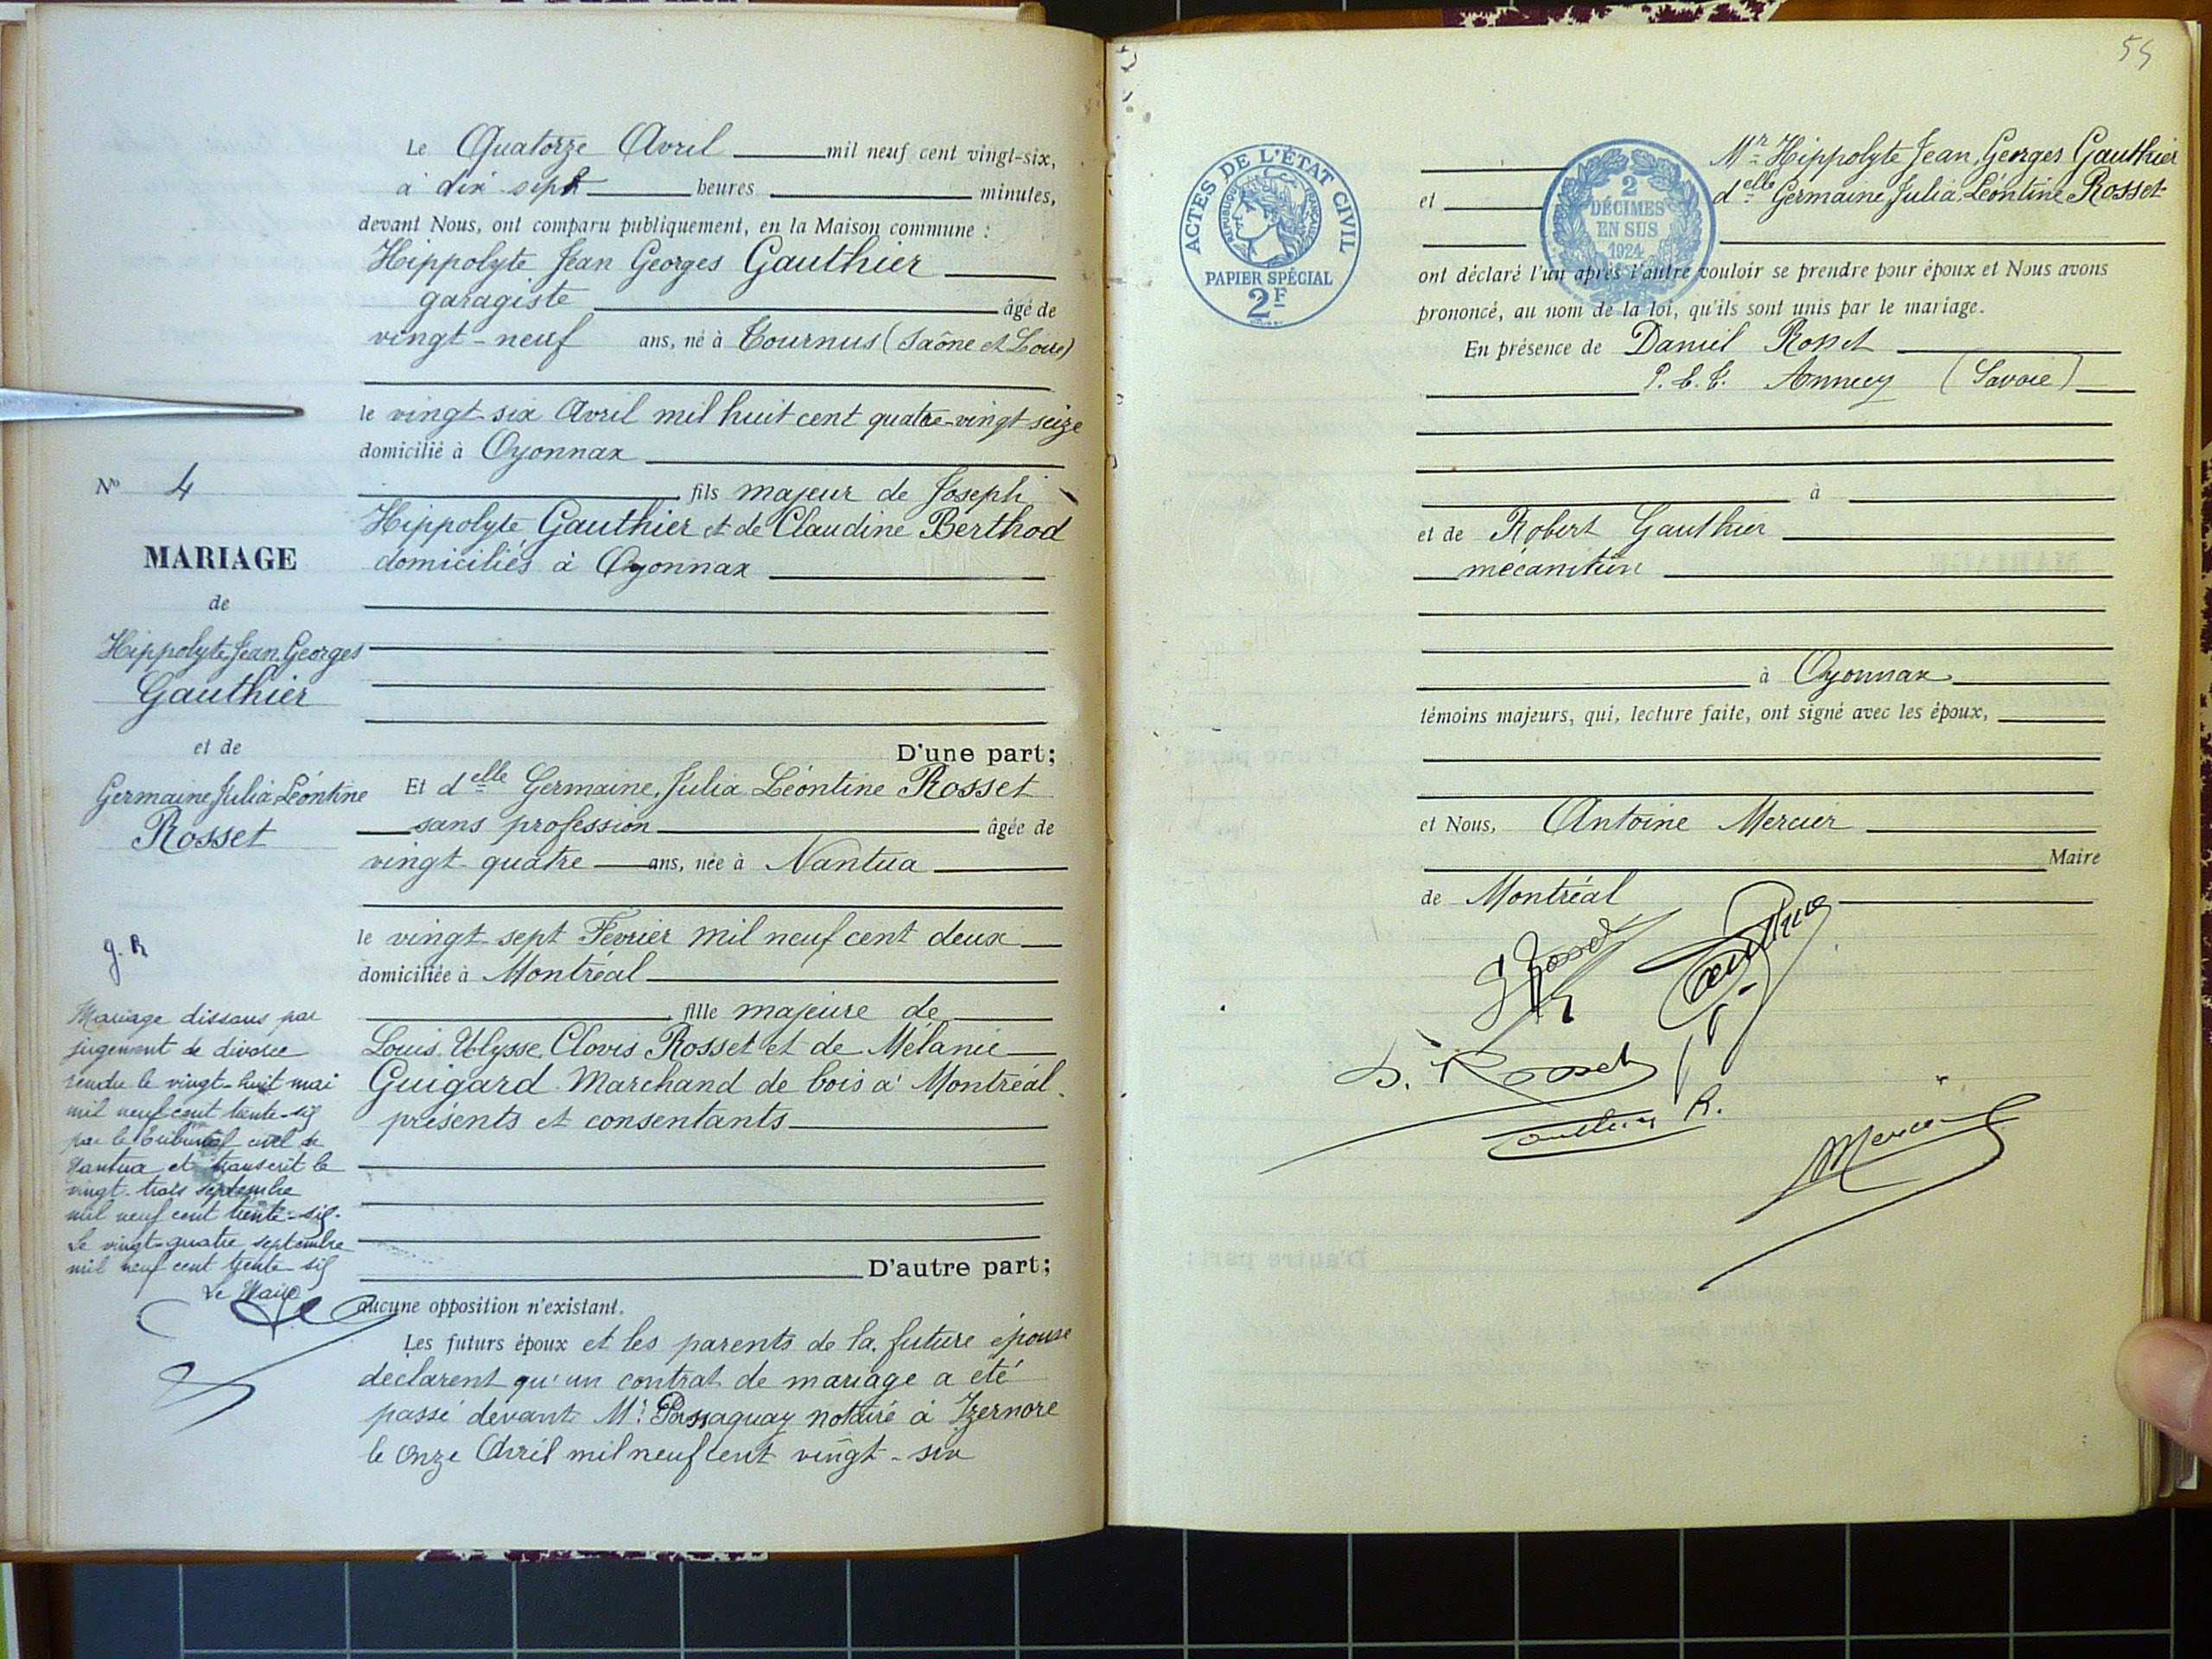 Le Quatorze Avril mil neuf cent vingt-six,
à dix sept heures minutes,
devant Nous, ont comparu publiquement, en la Maison commune :
Hippolyte Jean Georges Gauthier
garagiste âgé de
vingt-neuf ans, né à Tournus (Saône et Loire)
le vingt six Avril mil huit cent quatre-vingt seize
domicilié à Oyonnax
fils majeur de Joseph
Hippolyte Gauthier et de Claudine Berthod
domiciliés à Oyonnax
D'une part;
Et delle Germaine, Julia Léontine Rosset
sans profession âgée de
vingt-quatre ans, née à Nantua
le vingt-sept Février mil neuf cent deux
domiciliée à Montréal
fille majeure de
Louis, Ulysse, Clovis Rosset et de Mélanie
Guigard Marchand de bois à Montréal
présents et consentants
D'autre part;
aucune opposition n'existant.
Les futurs époux et les parents de la future épouse
déclarent qu'un contrat de mariage a été
passé devant Mr notaire à Izernore
le onze Avril mil neuf cent vingt-six
No 4
MARIAGE
de
Hippolyte Jean Georges
Gauthier
et de
Germaine Julia Léontine
Rosset
g. R
Mariage dissous par
jugement de divorce
rendu le vingt-huit mai
mil neuf cent trente-six
par le Tribunal civil de
Nantua et transcrit le
vingt-trois septembre
mil neuf cent trente-six.
Le vingt-quatre septembre
mil neuf cent trente-six
Le Maire
54
ACTES DE L'ÉTAT CIVIL
RÉPUBLIQUE FRANÇAISE
PAPIER SPÉCIAL
2F
2
DÉCIMES
EN SUS
1924
Mr Hippolyte Jean, Georges Gauthier
et delle Germaine Julia Léontine Rosset
ont déclaré l'un après l'autre vouloir se prendre pour époux et Nous avons
prononcé, au nom de la loi, qu'ils sont unis par le mariage.
En présence de Daniel Rosset
Annecy (Savoie)
à
et de Robert Gauthier
mécanicien
à Oyonnax
témoins majeurs, qui, lecture faite, ont signé avec les époux,
et Nous, Antoine Mercier
Maire
de Montréal
G Rosset
Gauthier
D. Rosset
Gauthier R.
Mercier